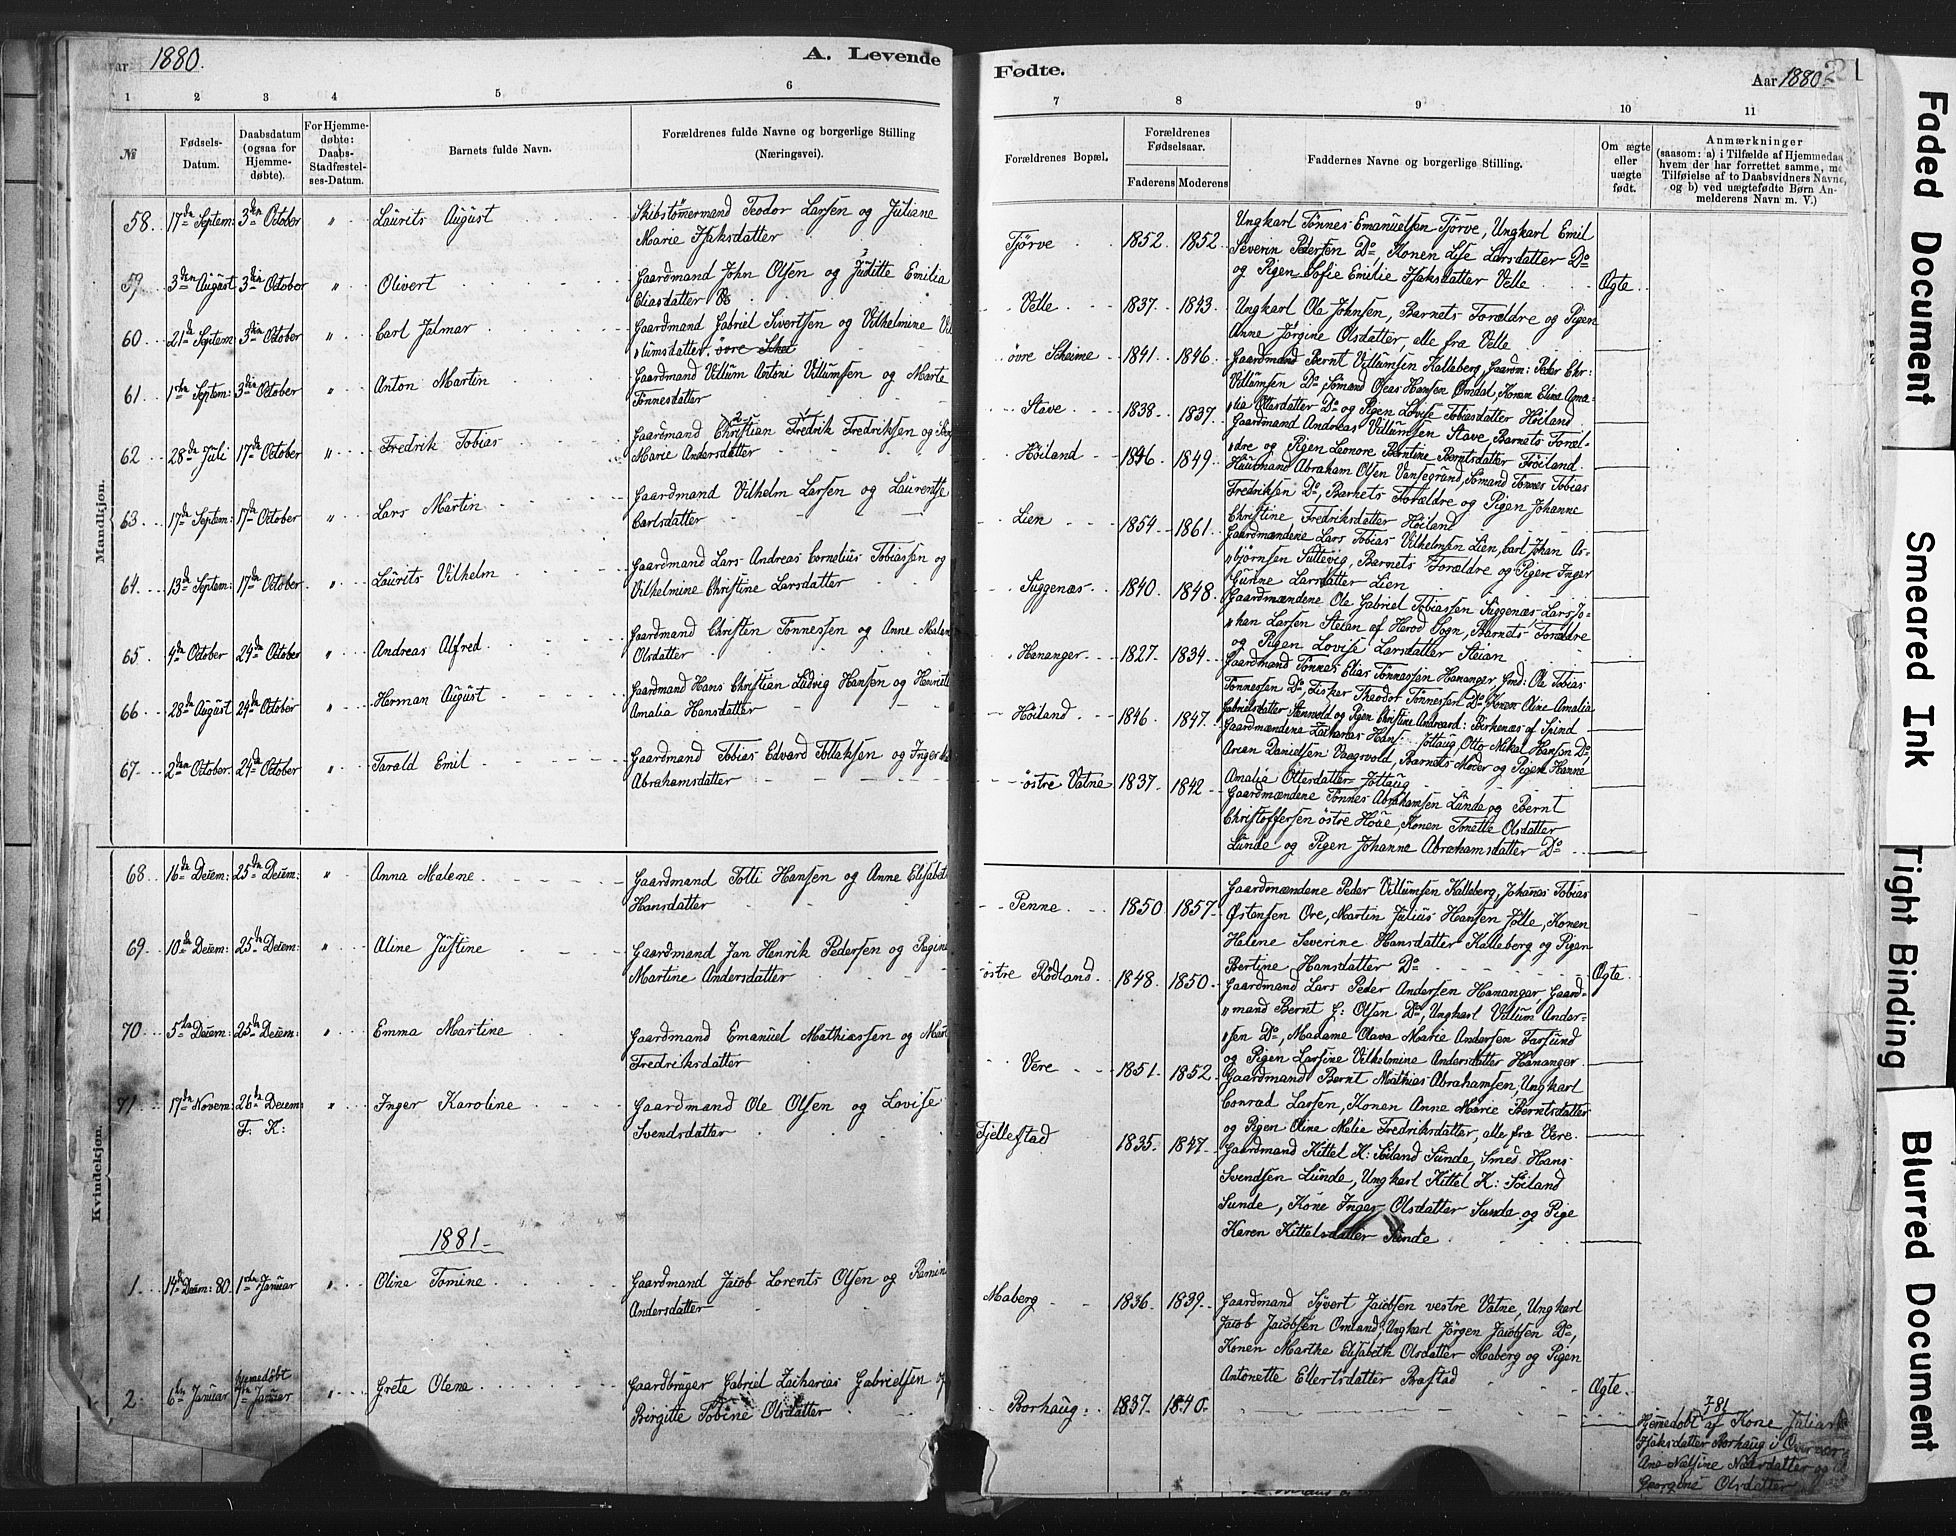 Aar 1880.
A. Levende
1 2 3 4 5 6
№
Fødsels-
Datum.
Daabsdatum
(ogsaa for
Hjemme-
døbte).
For Hjemme-
døbte:
Daabs-
Stadfæstel-
ses-Datum.
Barnets fulde Navn.
Forældrenes fulde Navne og borgerlige Stilling
(Næringsvei).
Mandkjøn.
58. 17de Septem: 3die October " Laurits August
Skibstømermand Teodor Larsen og Juliane
Marie Isaksdatter
59. 3die August 3die October " Olivert
Gaardmand John Olsen og Juditte Emilia
Eliasdatter
60 21de Septem 3die October " Carl Jalmar
Gaardmand Gabriel Sivertsen og Vilhelmine Vil
lumsdatter. øvre
61. 1ste Septem: 3die October " Anton Martin
Gaardmand Villum Antoni Villumsen og Marte
Tønnesdatter
62 28de Juli 17de October " Fredrik Tobias
Gaardmand Christian Fredrik Fredriksen og
Marie Andersdatter
63 17de Septem: 17de October " Lars Martin
Gaardmand Vilhelm Larsen og Laurentse
Carlsdatter
64. 13de Septem: 17de October " Laurits Vilhelm
Gaardmand Lars Andreas Cornelius Tobiassen og
Vilhelmine Christine Larsdatter
65 4de October 24de October " Andreas Alfred
Gaardmand Christen Tønnessen og Anne Malen
Olsdatter
66 28de August 24de October " Herman August
Gaardmand Hans Christian Ludvig Hansen og Henriett
Amalia Hansdatter
67. 2den October. 24de October " Tarald Emil
Gaardmand Tobias Edvard Tollaksen og Inger
Abrahamsdatter
Kvindekjøn.
68 16de Decem: 25de Decem: " Anna Malene
Gaardmand Tolli Hansen og Anne Elisabeth
Hansdatter
69. 10de Decem: 25de Decem: " Aline Justine
Gaardmand Jan Henrik Pedersen og Regine
Martine Andersdatter
70 5te Decem: 25de Decem: " Emma Martine
Gaardmand Emanuel Mathiassen og Mart
Fredriksdatter
71 17de Novem: 26de Decem: " Inger Karoline
F. K:
Gaardmand Ole Olsen og Lovise
Svendsdatter
1881
1. 14de Decem: 80. 1ste Januar " Oline Tomine
Gaardmand Jacob Lorents Olsen og Ramine
Andersdatter
2. 6te Januar Hjemedøbt
7de Januar " Grete Olene
Gaardbruger Gabriel Zacharias Gabrielsen og
Birgitte Tobine Olsdatter
Fødte.
Aar 1880.
21
7 8 9 10 11
Forældrenes Bopæl.
Forældrenes
Fødselsaar.
Faderens Moderens
Faddernes Navne og borgerlige Stilling.
Om ægte
eller
uægte
født.
Anmærkninger
(saasom: a) i Tilfælde af Hjemmedaa
hvem der har forrettet samme, me
Tilføielse af to Daabsvidners Navne,
og b) ved uægtefødte Børn An-
melderens Navn m. V.)
Tjörve 1852 1852.
Ungkarl Tönnes Emanuelsen Tjörve, Ungkarl Emil
Severin Pedersen Do, Konen Lise Larsdatter Do
og Pigen Sofie Emilie Isaksdatter Velle Ægte
Velle 1837. 1843.
Ungkarl Ola Johnsen, Barnets Forældre og Pigen
Anne Jörgine Olsdatter alle fra Velle
øvre Skeime 1841. 1846.
Gaardmand Bernt Villumsen Kalleberg, Gaardm: Peder Chr:
Villumsen Do, Sömand Oleas Hansen Omdal, Konen Elina Ama
lia Ottersdatter Do og Pigen Lovise Tobiasdatter Høiland
Stave 1838. 1837
Gaardmand Andreas Villumsen Stave, Barnets Foræl-
dre og Pigen Leonore Berntine Berntsdatter Høiland.
Høiland 1846. 1849.
Huusmand Abraham Olsen Vansegrund, Sömand Tönnes Tobias
Fredriksen Do, Barnets Forældre og Pigen Johanne
Christine Fredriksdatter Høiland
Lien 1854. 1861.
Gaardmændene Lars Tobias Vilhelmsen Lien, Carl Johan As-
björnsen Sullevig, Barnets Forældre og Pigen Inger
Gurine Larsdatter Lien
Siggenæs 1840. 1848.
Gaardmændene Ole Gabriel Tobiassen Siggenæs, Lars Jo-
han Larsen Steian af Herod Sogn, Barnets Forældre
og Pigen Lovise Larsdatter Steian
Hananger 1827. 1834.
Gaardmand Tönnes Elias Tönnessen Hananger, Gmd: Ole Tobias
Tönnessen Do, Fisker Theodor Tönnessen Do, Konen Oline Amalia
Gabrielsdatter og Pigen Christine Andreasd: Birkenæs af Spind
Høiland 1846. 1847.
Gaardmændene Zacharias Hans: Jöllaug, Otto Mikal Hansen Do,
Arean Danielsen Vaagsvold, Barnets Moder og Pigen Hanne
Amalia Ottersdatter Jöllaug
østre Vatne 1837. 1842
Gaardmændene Tönnes Abrahamsen Lunde og Bernt
Christoffersen østre Houe, Konen Tonette Olsdatter
Lunde og Pigen Johanne Abrahamsdatter Do
Penne 1850 1857
Gaardmændene Peder Villumsen Kalleberg, Johanes Tobias
Østensen Ore, Martin Julius Hansen Jölle, Konen
Helene Severine Hansdatter Kalleberg og Pigen
Bertine Hansdatter Do Ægte
østre Rödland 1848. 1850.
Gaardmand Lars Peder Andersen Hananger, Gaard-
mand Bernt G: Olsen Do, Ungkarl Villum Ander-
sen Do, Madame Olava Marie Andersen Farsund
og Pigen Larsine Vilhelmine Andersdatter Hananger
Vere 1851. 1852.
Gaardmand Bernt Mathias Abrahamsen, Ungkarl
Conrad Larsen, Konen Anne Marie Berntsdatter
og Pigen Oline Malie Fredriksdatter, alle fra Vere
Fjellestad 1835. 1847.
Gaardmand Kittel K: Søiland Sunde, Smed Hans
Svendsen Lunde, Ungkarl Kittel K: Søiland
Sunde, Kone Inger Olsdatter Sunde og Pige
Karen Kittelsdatter Sunde
Maberg 1836. 1839.
Gaardmand Syvert Jacobsen vestre Vatne, Ungkarl
Jacob Jacobsen Omland, Ungkarl Jörgen Jacobsen Do,
Konen Marthe Elisabeth Olsdatter Maberg og Pigen
Antonette Ellertsdatter Brastad Ægte
Borhaug 1837. 1840.
F 81
Hjemedøbt af Kone Juliane
Isaksdatter Borhaug i Overvær
Ane Nælsine og
Georgine Olsdatter
Faded Document
Smeared Ink
Tight Binding
Blurred Document